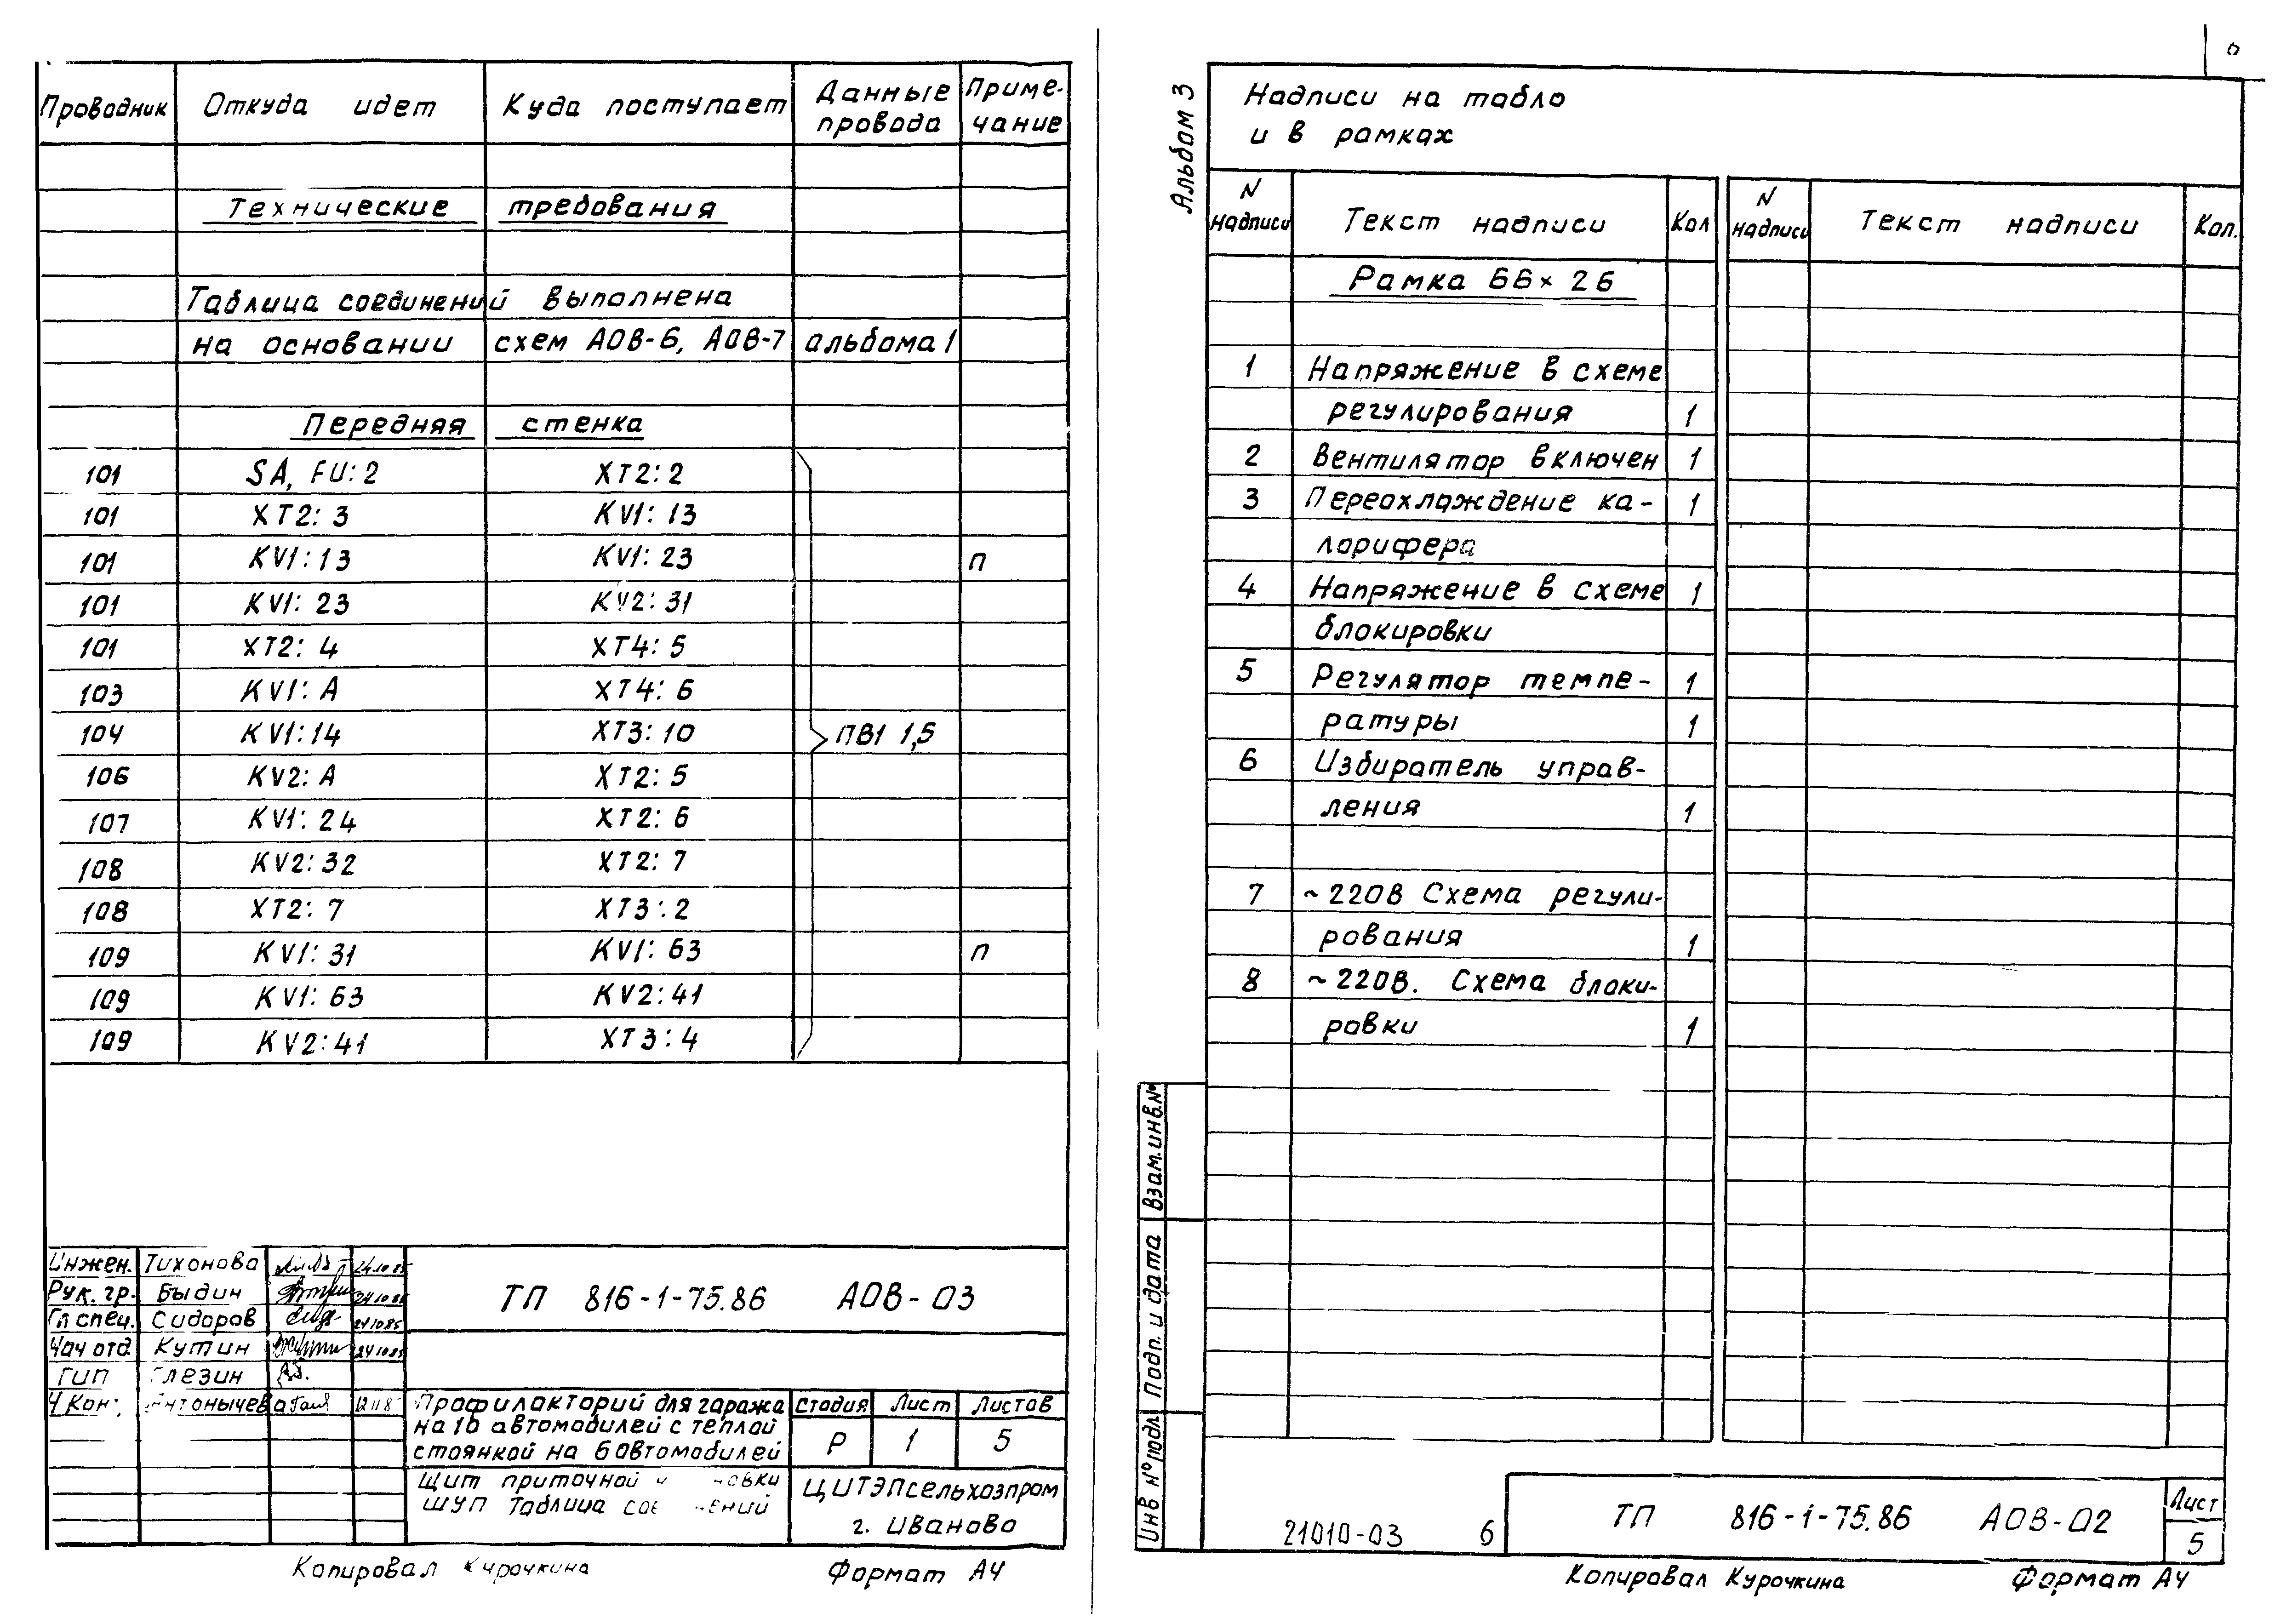 Проводник Откуда идет Куда поступает Данные провода Приме-чание
Технические требования
Таблица соединений выполнена
на основании схем АОВ-6, АОВ-7 альбома 1
Передняя стенка
101 SA, FU: 2 XT2: 2
101 XT2: 3 KV1: 13
101 KV1: 13 KV1: 23 п
101 KV1: 23 KV2: 31
101 XT2: 4 XT4: 5
103 KV1: A XT4: 6
104 KV1: 14 XT3: 10 ПВ1 1,5
106 KV2: A XT2: 5
107 KV1: 24 XT2: 6
108 KV2: 32 XT2: 7
108 XT2: 7 XT3: 2
109 KV1: 31 KV1: 63 п
109 KV1: 63 KV2: 41
109 KV2: 41 XT3: 4
Инжен. Тихонова 24.10.85
Рук. гр. Быдин 24.10.85
Гл спец. Сидоров 24.10.85
Нач отд Кутин 24.10.85
ГИП Глезин
Н Кон. Антонычева
ТП 816-1-75.86 АОВ-03
Профилакторий для гаража
на 10 автомобилей с теплой
стоянкой на 6 автомобилей
Стадия Лист Листов
Р 1 5
Щит приточной
ШУП Таблица
ЦИТЭПсельхозпром
г. Иваново
Копировал Курочкина Формат А4
6
Альбом 3
Надписи на табло
и в рамках
N надписи Текст надписи Кол N надписи Текст надписи Кол.
Рамка 66×26
1 Напряжение в схеме
регулирования 1
2 Вентилятор включен 1
3 Переохлаждение ка- 1
лорифера
4 Напряжение в схеме 1
блокировки
5 Регулятор темпе- 1
ратуры 1
6 Избиратель управ-
ления 1
7 ~220В Схема регули-
рования 1
8 ~220В. Схема блоки-
ровки 1
Взам.инв.№
Подп. и дата
Инв № подл.
21010-03 6
ТП 816-1-75.86 АОВ-02
Лист
5
Копировал Курочкина Формат А4